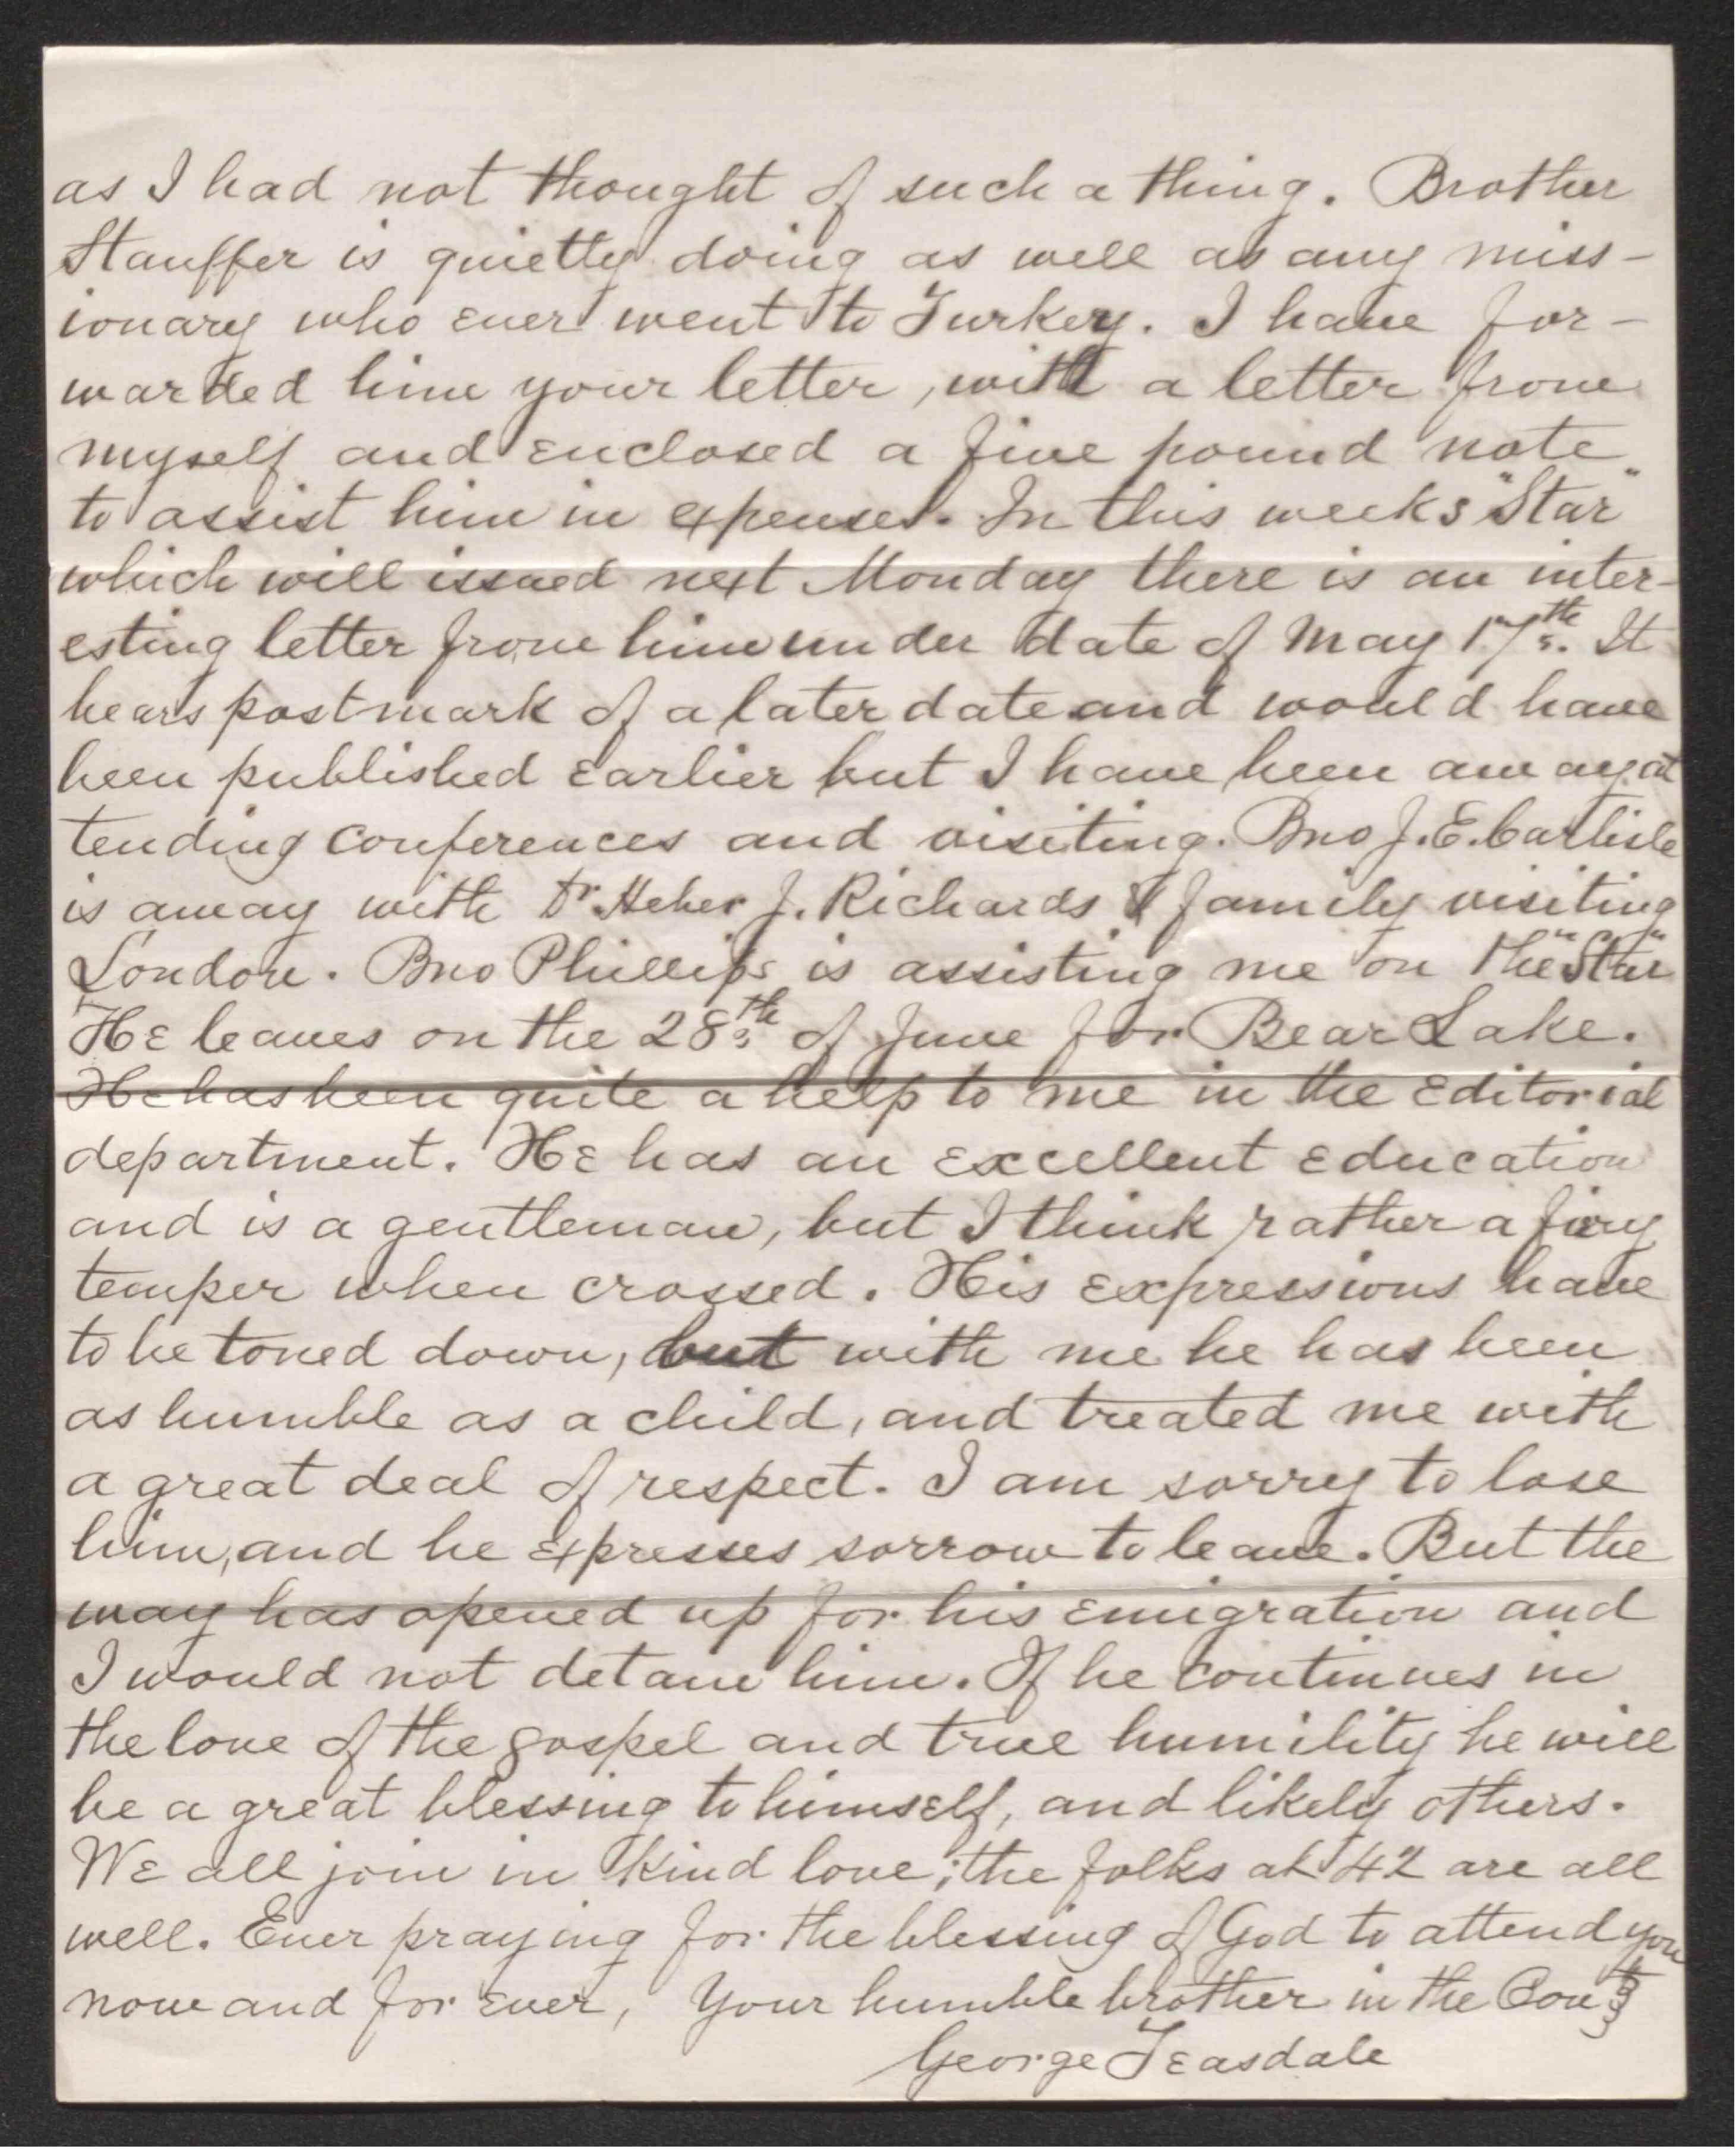 as I had not thought of such a thing. Brother
Stauffer is quietly doing as well as any miss-
ionary who ever went to Turkey. I have for-
warded him your letter, with a letter from
myself and enclosed a five pound note
to assist him in expenses. In this weeks "Star"
which will issued next Monday there is an inter-
esting letter from him under date of May 17th. It
bears postmark of a later date and would have
been published earlier but I have been away at
tending conferences and visiting. Bro J. E. Carlisle
is away with Dr. Heber J. Richards & family visiting
London. Bro Phillips is assisting me on the "Star"
He leaves on the 28th of June for Bear Lake.
He has been quite a help to me in the editorial
department. He has an excellent education
and is a gentleman, but I think rather a firy
temper when crossed. His expressions have
to be toned down, but with me he has been
as humble as a child, and treated me with
a great deal of respect. I am sorry to lose
him, and he expresses sorrow to leave. But the
way has opened up for his emigration and
I would not detain him. If he continues in
the love of the gospel and true humility he will
be a great blessing to himself, and likely others.
We all join in kind love; the folks at 42 are all
well. Ever praying for the blessing of God to attend you
now and for ever, Your humble brother in the Cont
George Teasdale